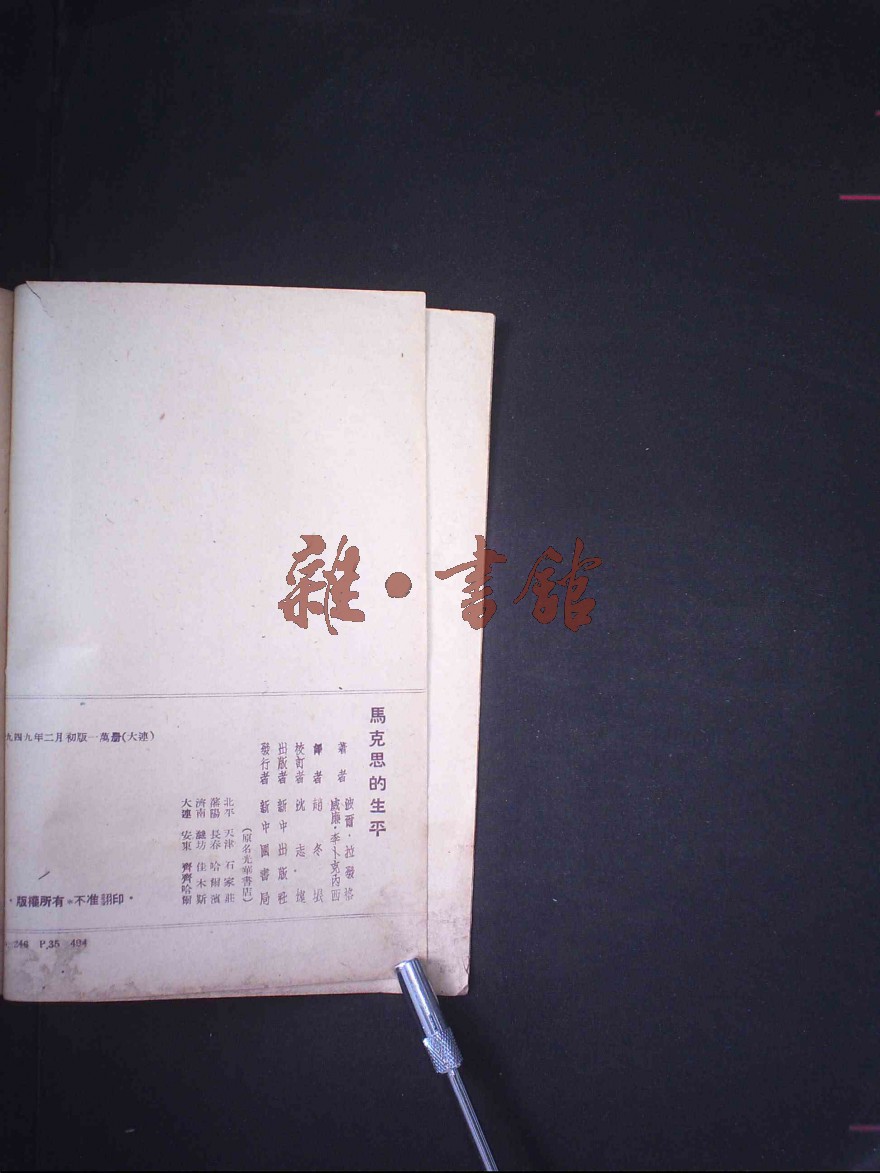 馬克思的生平
著者 波爾·拉發格
威廉·李卜克內西
譯者 趙冬垠
校訂者 沈志·
出版者 新中出版社
發行者 新中國書局
(原名光華書店)
北平 天津 石家莊
瀋陽 長春 哈爾濱
濟南 濰坊 佳木斯
大連 安東 齊齊哈爾
九四九年二月初版一萬册(大連)
·版權所有·不准翻印·
246 P.35 404
雜·書館